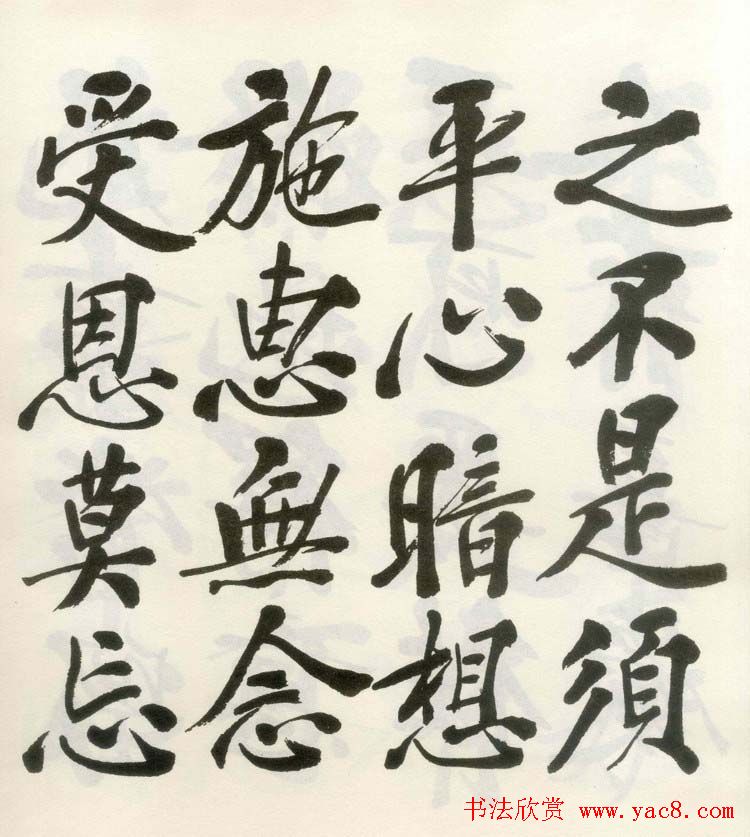 之不是須
平心暗想
施惠無念
受恩莫忘
书法欣赏 www.yac8.com